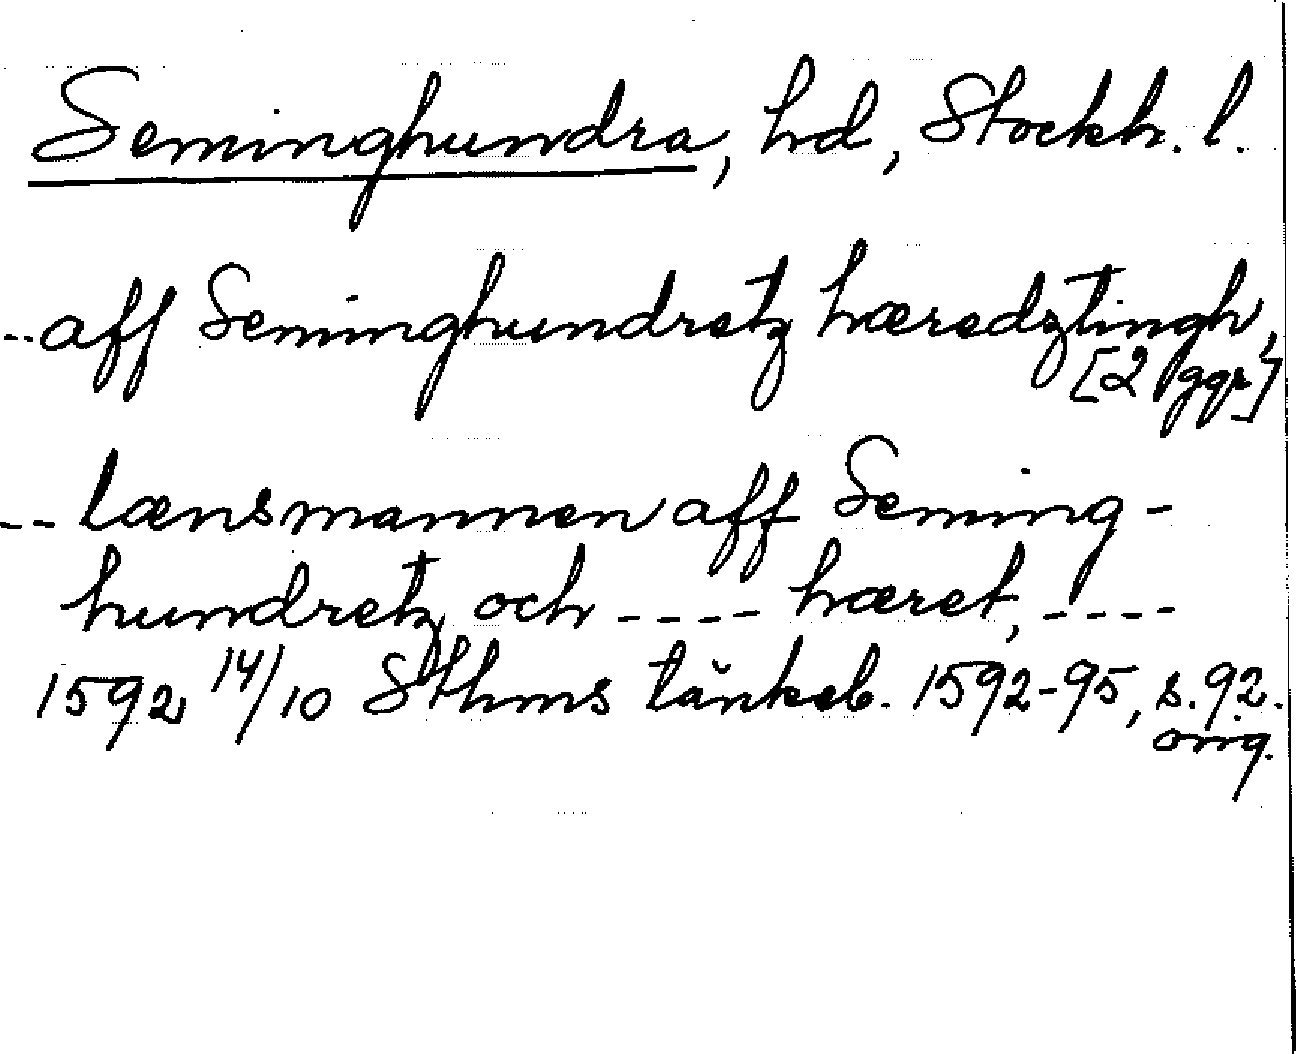 Seminghundra, hd, Stockh. l.
--aff Seminghundretz hæredztingh,
[2 ggr]
-- lænsmannen aff Seming-
hundretz och ---- hæret, ----
1592 14/10 Sthms tänkeb. 1592-95, s. 92.
orig.